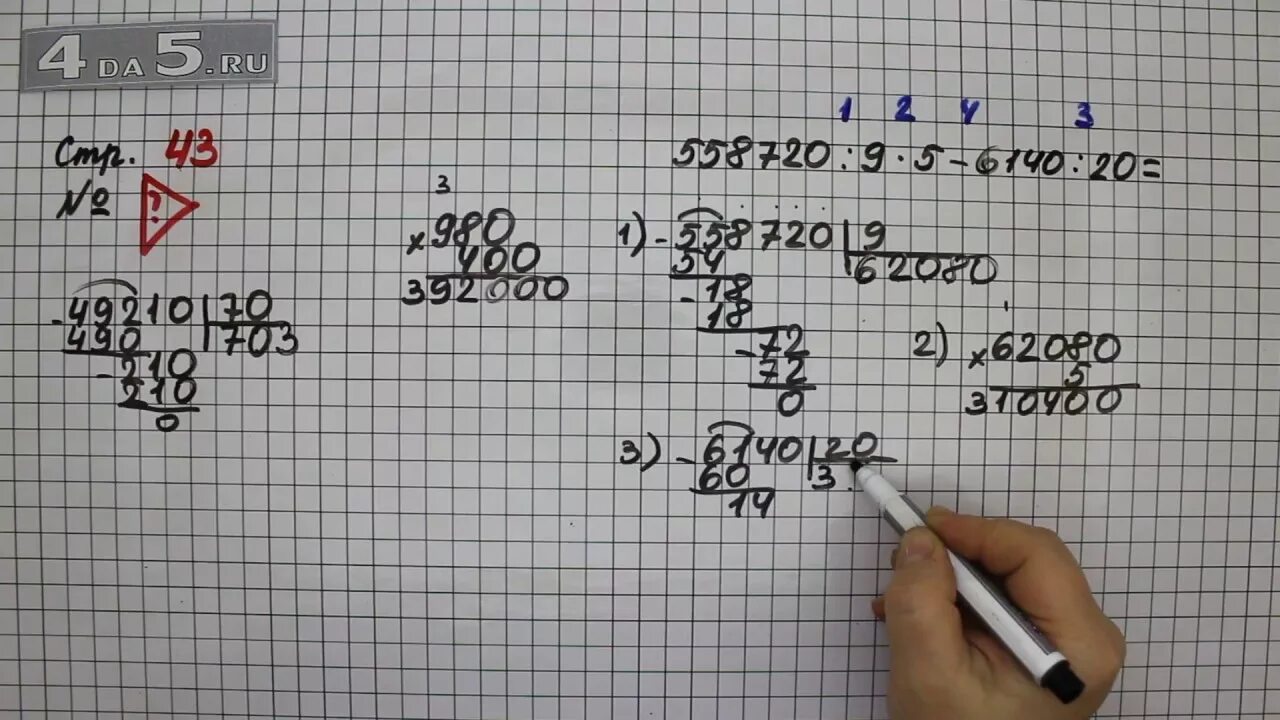 4DA5.RU
Стр. 43
№ ?
49210 | 70
- 490 703
- 210
210
0
3
980
× 400
392000
1 2 4 3
558720 : 9 · 5 - 6140 : 20 =
1) - 558720 | 9
54 62080
- 18
18
- 72
72
0
2) × 62080
5
310400
3) - 6140 | 20
60 3
14